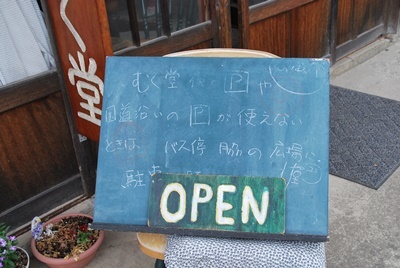 く堂
むく堂 P や
国道沿いの P が使えない
ときは、バス停 脇の 広場に
駐車
OPEN